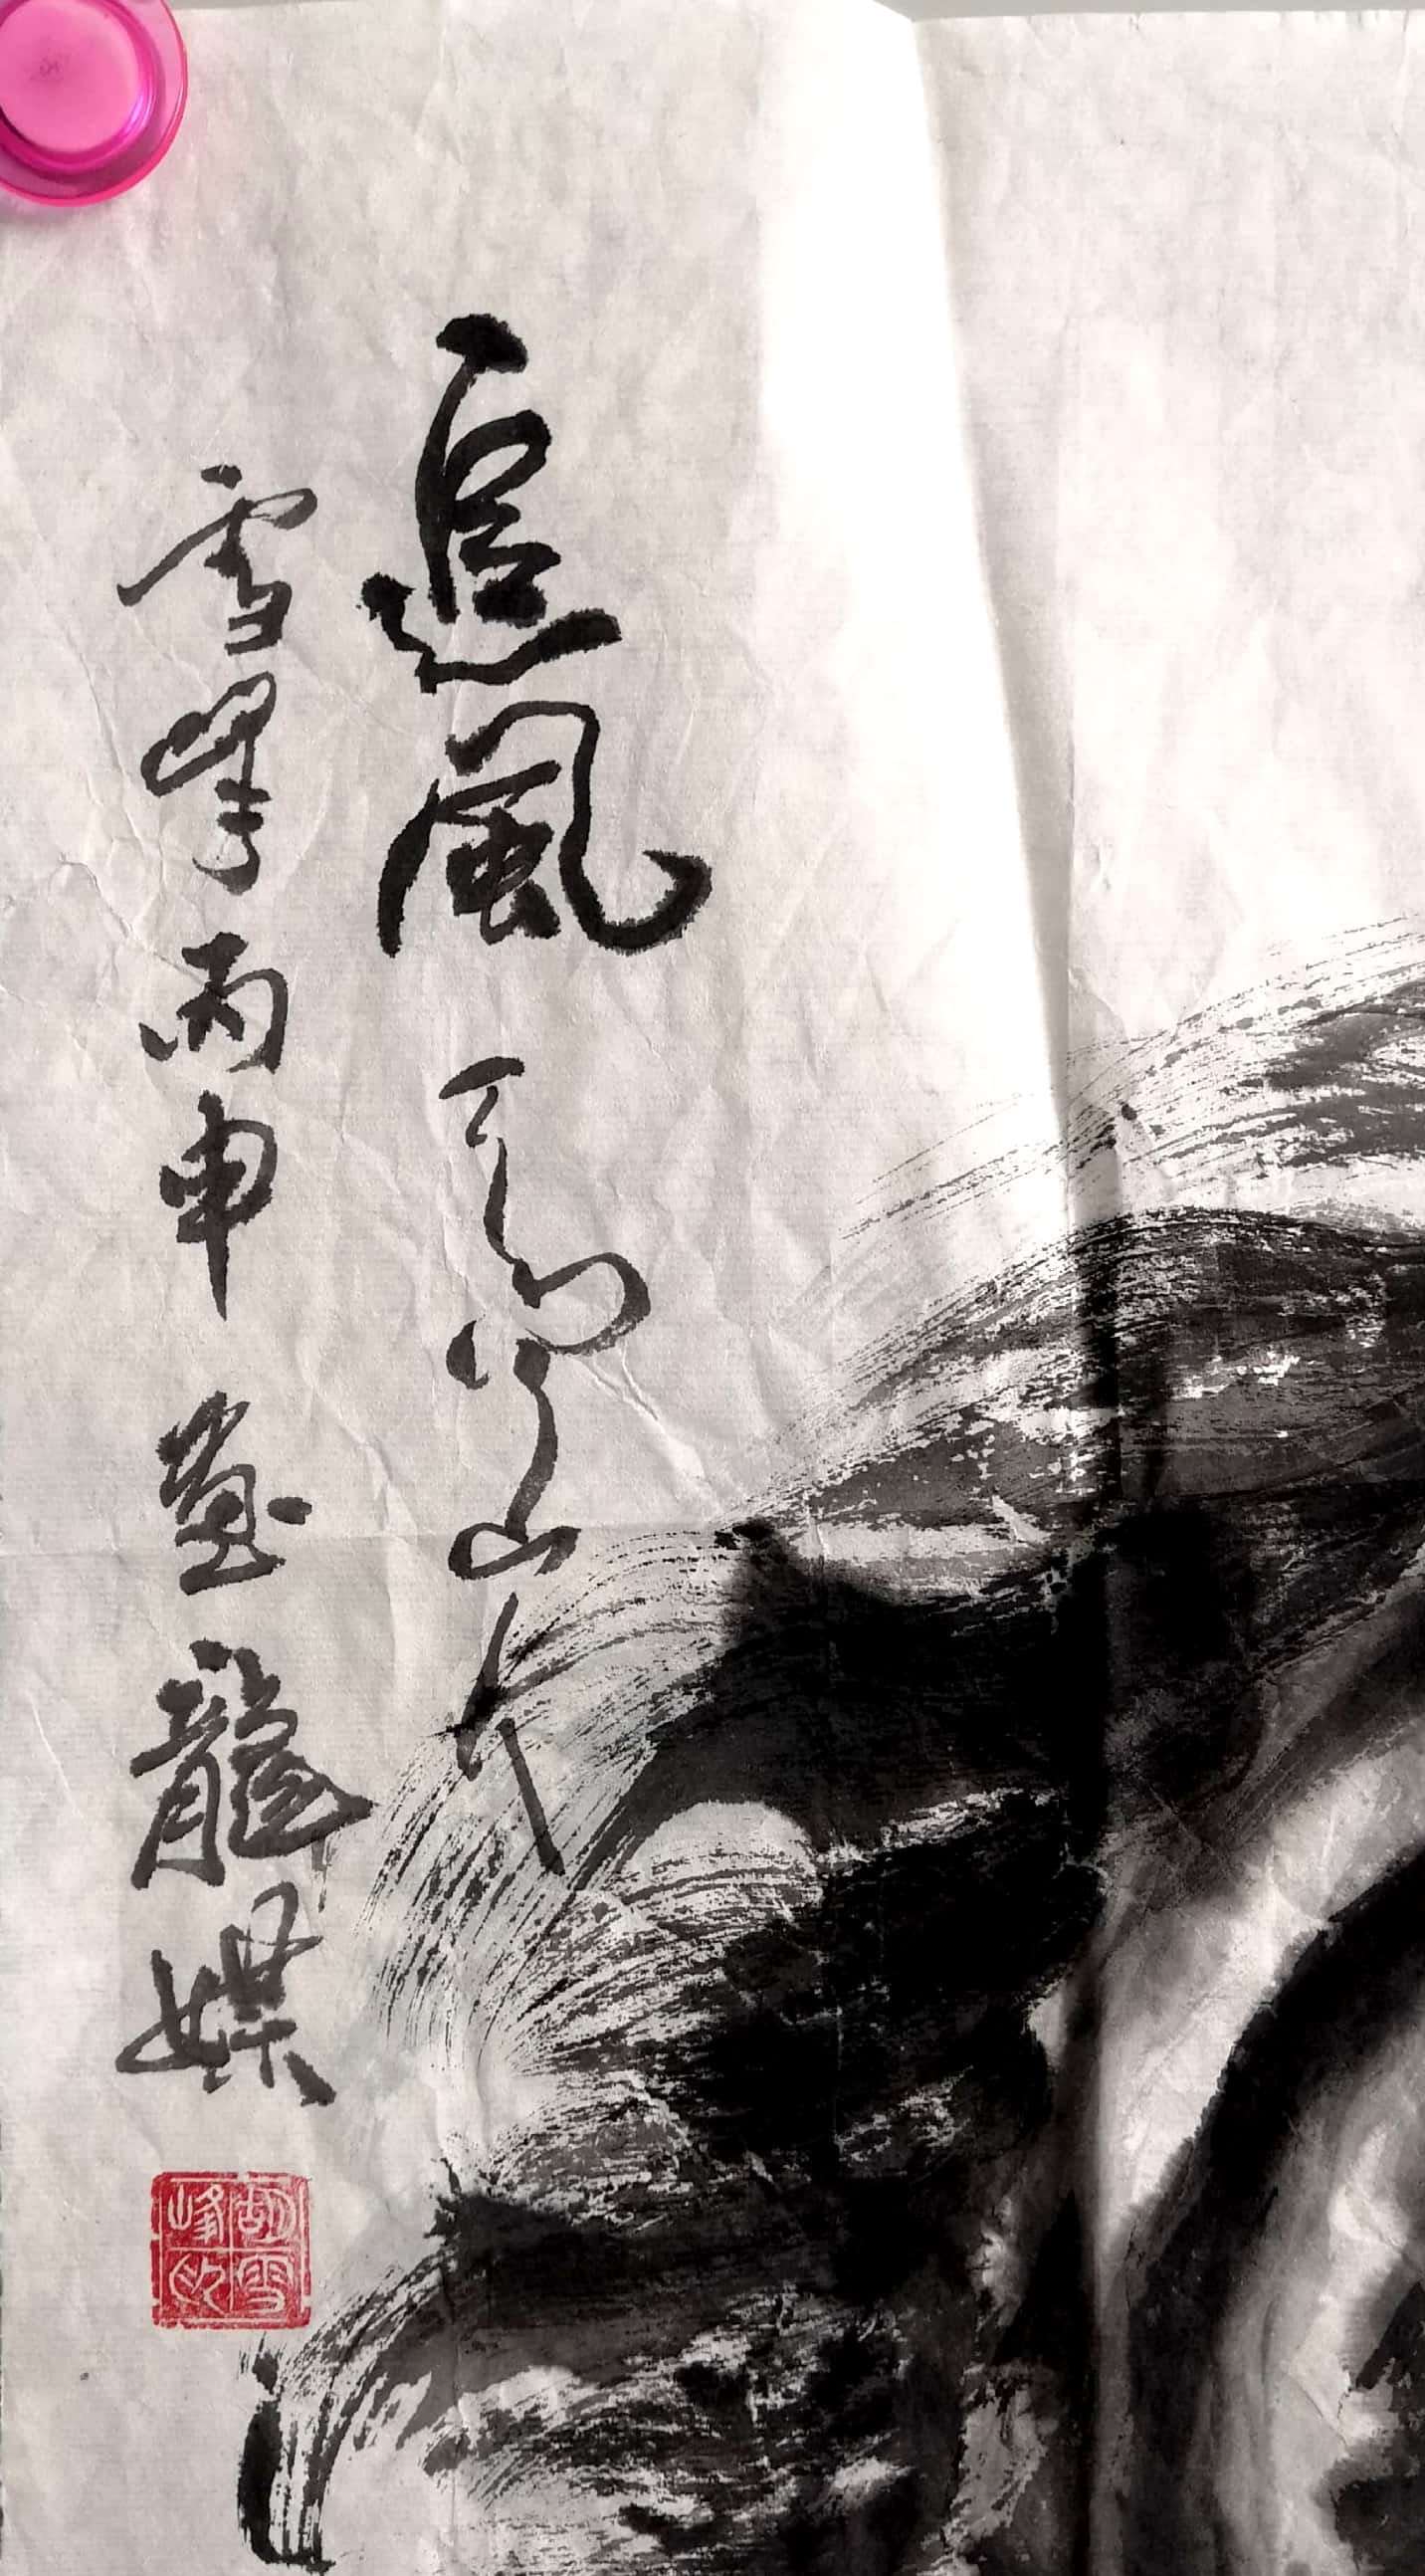 追風
雪峰丙申畫龍媒
胡雪
峰印